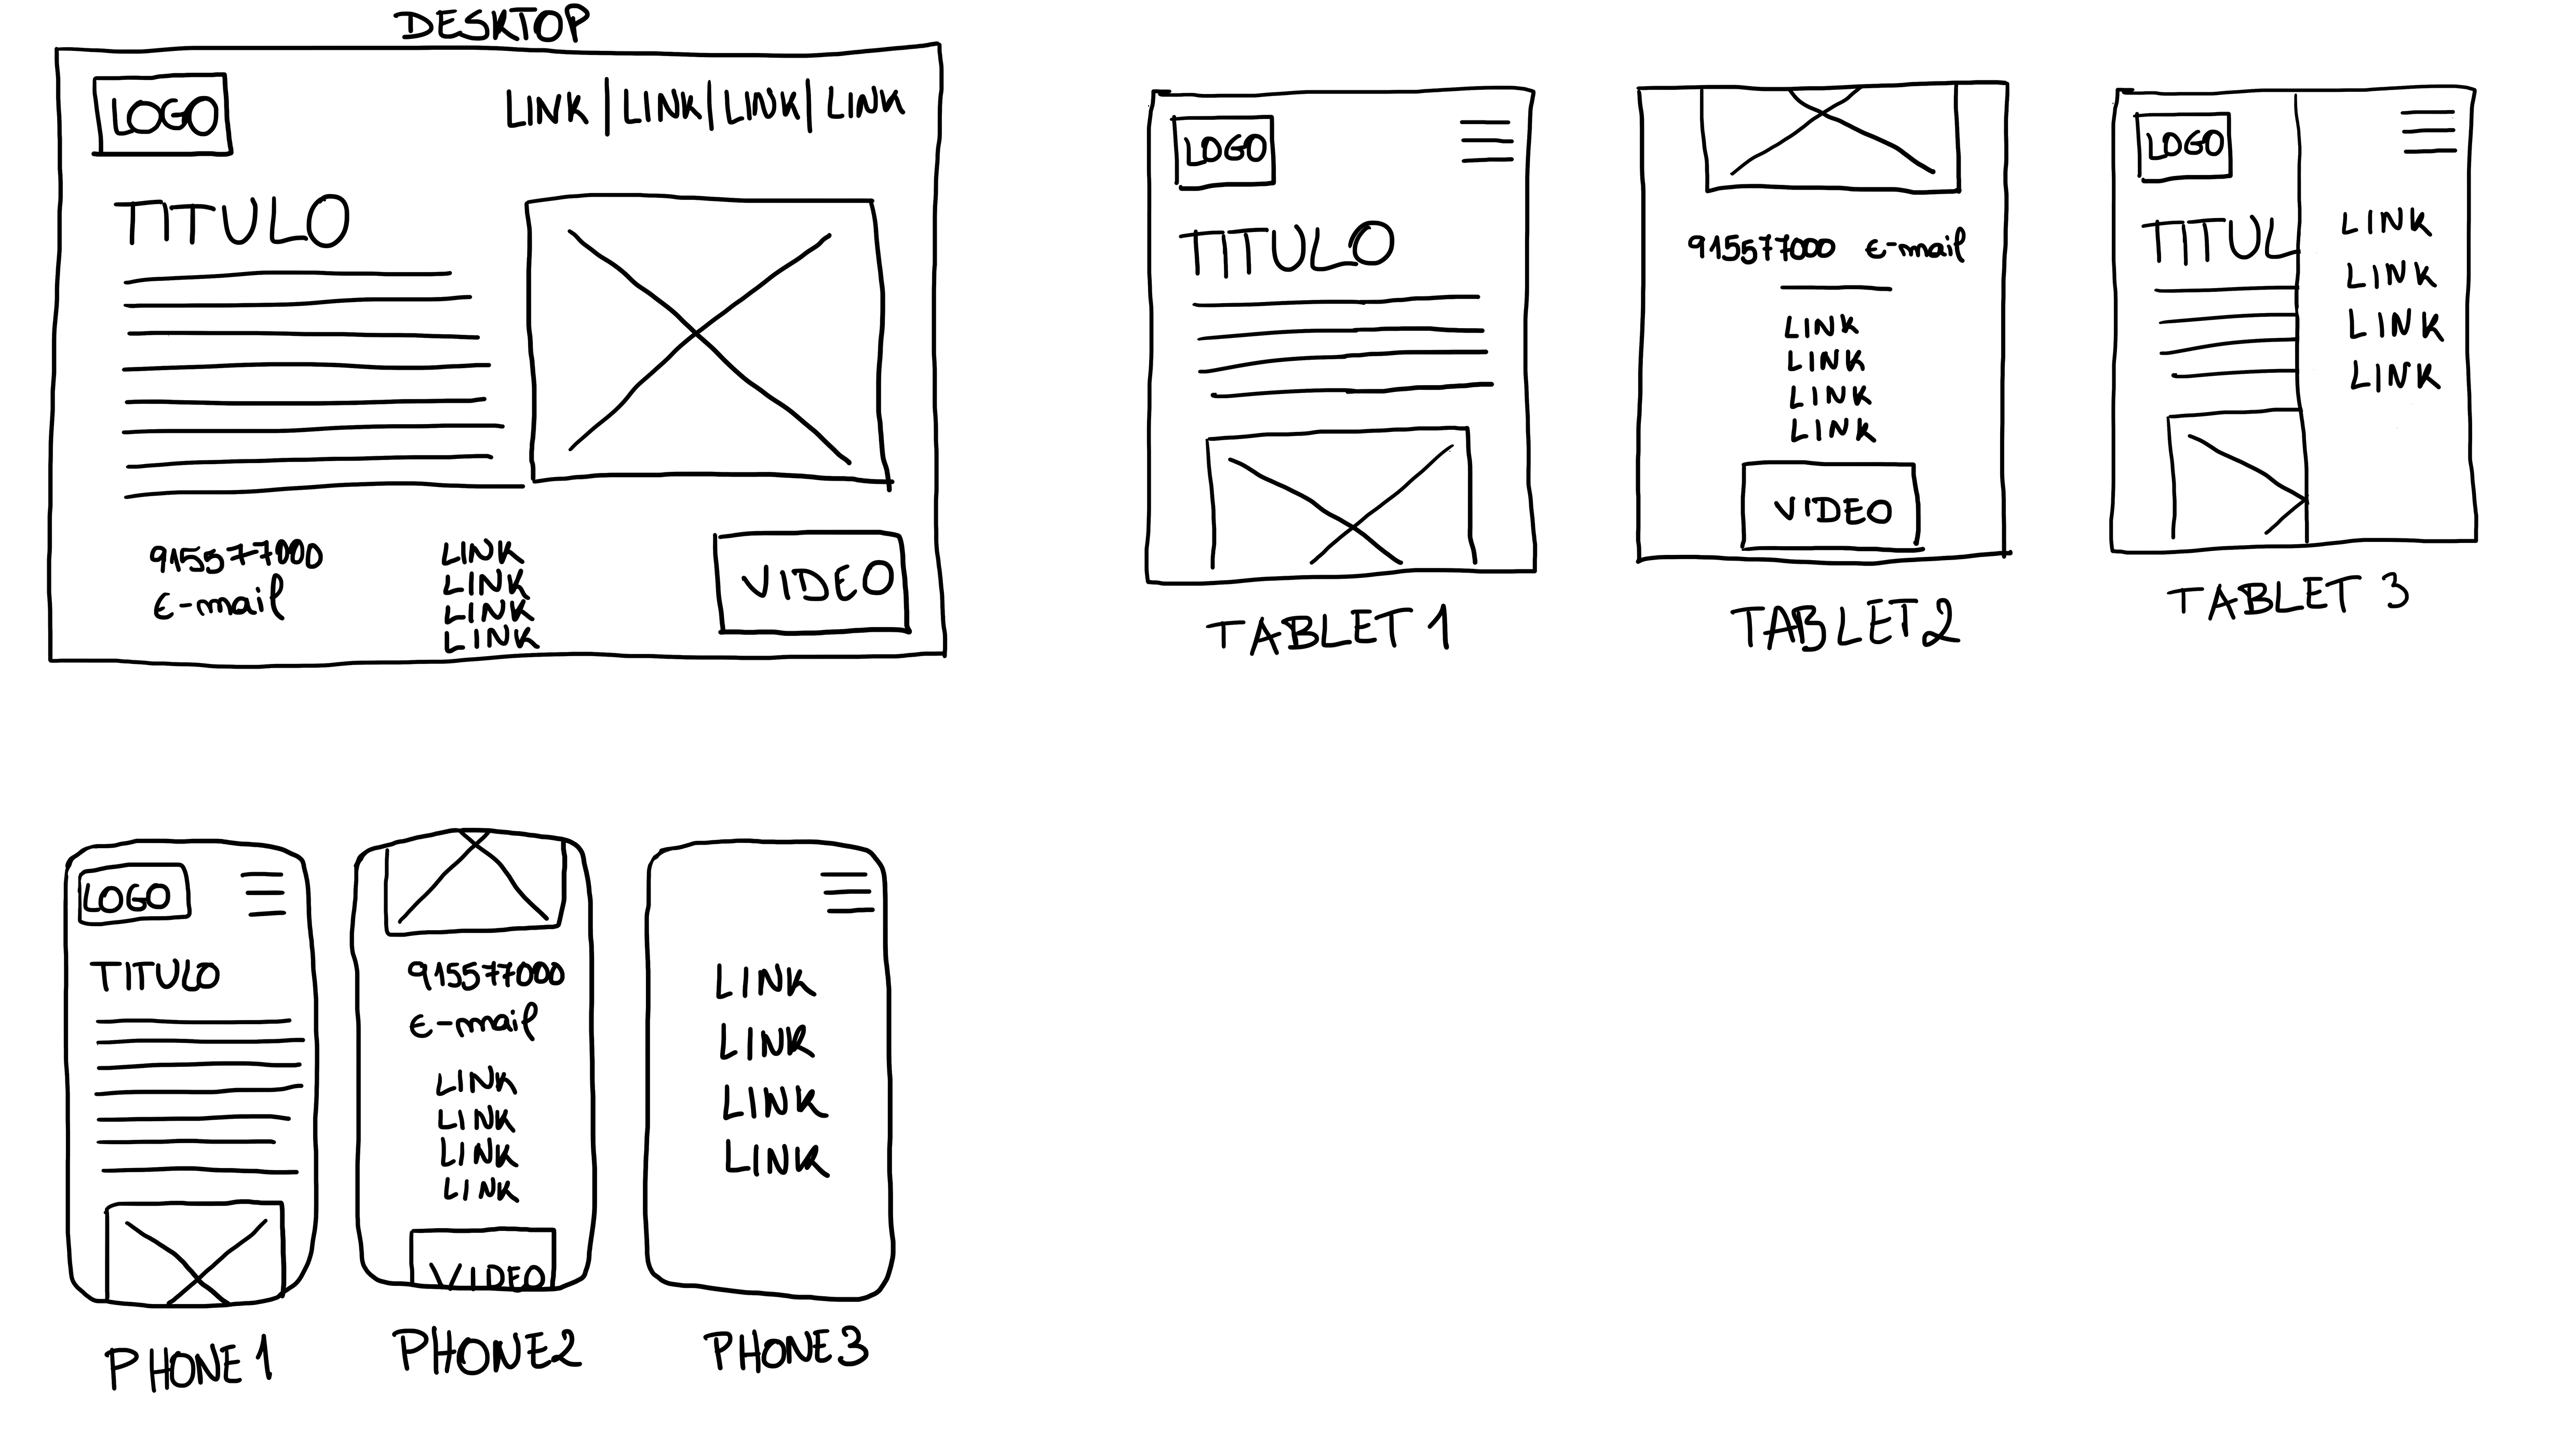 DESKTOP
LOGO
LINK | LINK | LINK | LINK
TITULO
915577000
E-mail
LINK
LINK
LINK
LINK
VIDEO
LOGO
TITULO
TABLET 1
915577000 E-mail
LINK
LINK
LINK
LINK
VIDEO
TABLET 2
LOGO
TITUL
LINK
LINK
LINK
LINK
TABLET 3
LOGO
TITULO
PHONE 1
915577000
E-mail
LINK
LINK
LINK
LINK
VIDEO
PHONE 2
LINK
LINK
LINK
LINK
PHONE 3